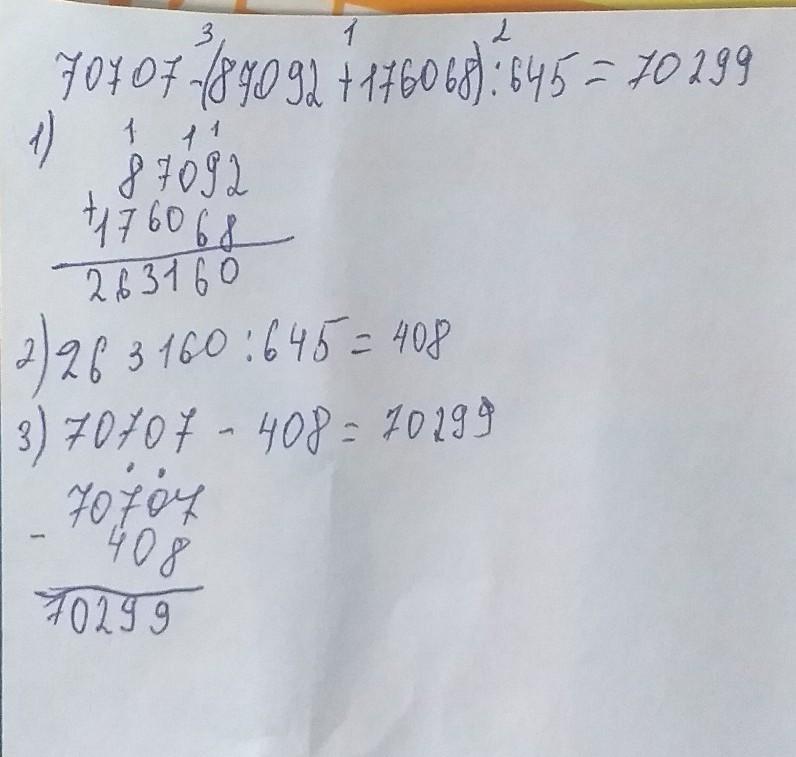 3 1 2
70707-(87092+176068):645=70299
1)
1 1 1
87092
+176068
263160
2) 263160:645=408
3) 70707-408=70299
70707
-
408
70299